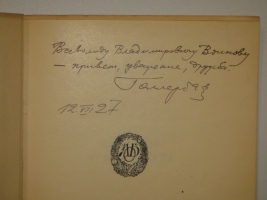 Всеволоду Владимировичу Воинову
— привет, уважение, дружба
Голлербах
12 VII 27